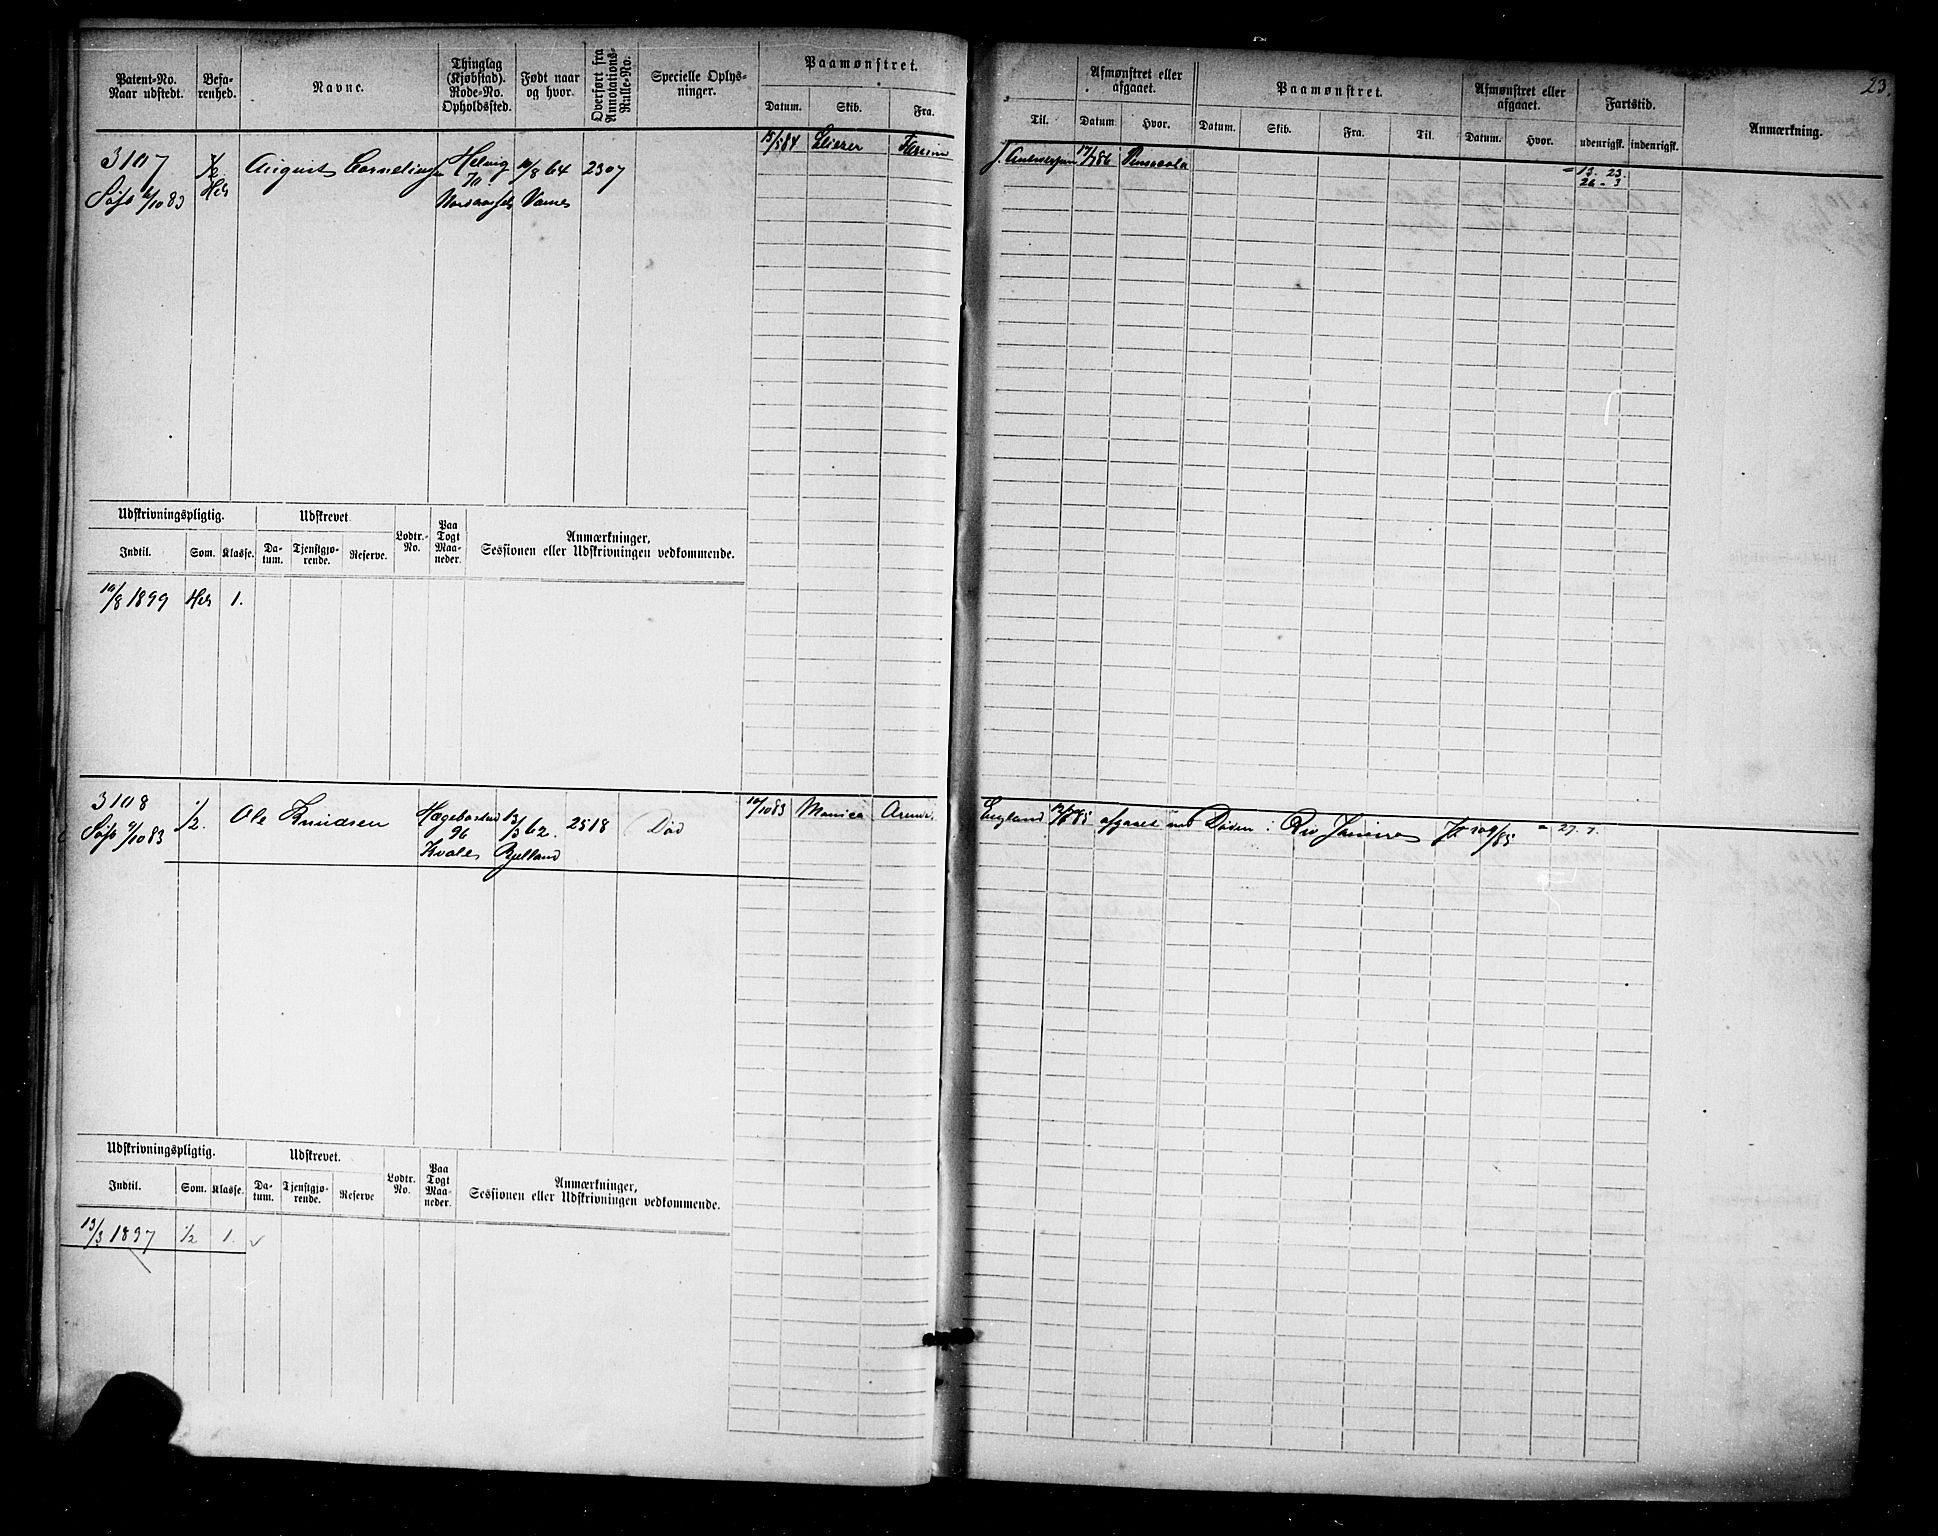 23.
Patent-No. Naar udstedt.
Befarenhed.
Navne.
Thinglag (Kjøbstad). Rode-No. Opholdssted.
Født naar og hvor.
Overført fra Annotations-Rulle-No.
Specielle Oplysninger.
Paamønstret.
Datum. Skib. Fra.
Til.
Afmønstret eller afgaaet.
Datum. Hvor.
Paamønstret.
Datum. Skib. Fra. Til.
Afmønstret eller afgaaet.
Datum. Hvor.
Fartstid.
udenrigsk. indenrigsk.
Anmærkning.
3107 1/2 August Cornelius 10/8 64 2307 15/5 84 Antwerpen 86 Pensacola
13. 23.
26 - 3
10/83 Hel 70 Vanse
Udskrivningspligtig. Udskrevet. Lodtr.-No. Paa Togt Maaneder. Anmærkninger, Sessionen eller Udskrivningen vedkommende.
Indtil. Som. Klasse. Datum. Tjenstgjørende. Reserve.
10/8 1899 Hel 1.
3108 1/2. Ole Knudsen Hægebostad 13/3 62. 2518 Død 10/10 83 Monica England 85 afgaaet ved Døden i Rio Janeiro 109/85 = 27. 7.
10/83 96
Kvale Bjelland
Udskrivningspligtig. Udskrevet. Lodtr. No. Paa Togt Maaneder. Anmærkninger, Sessionen eller Udskrivningen vedkommende.
Indtil. Som. Klasse. Datum. Tjenstgjørende. Reserve
13/3 1897 1/2 1.